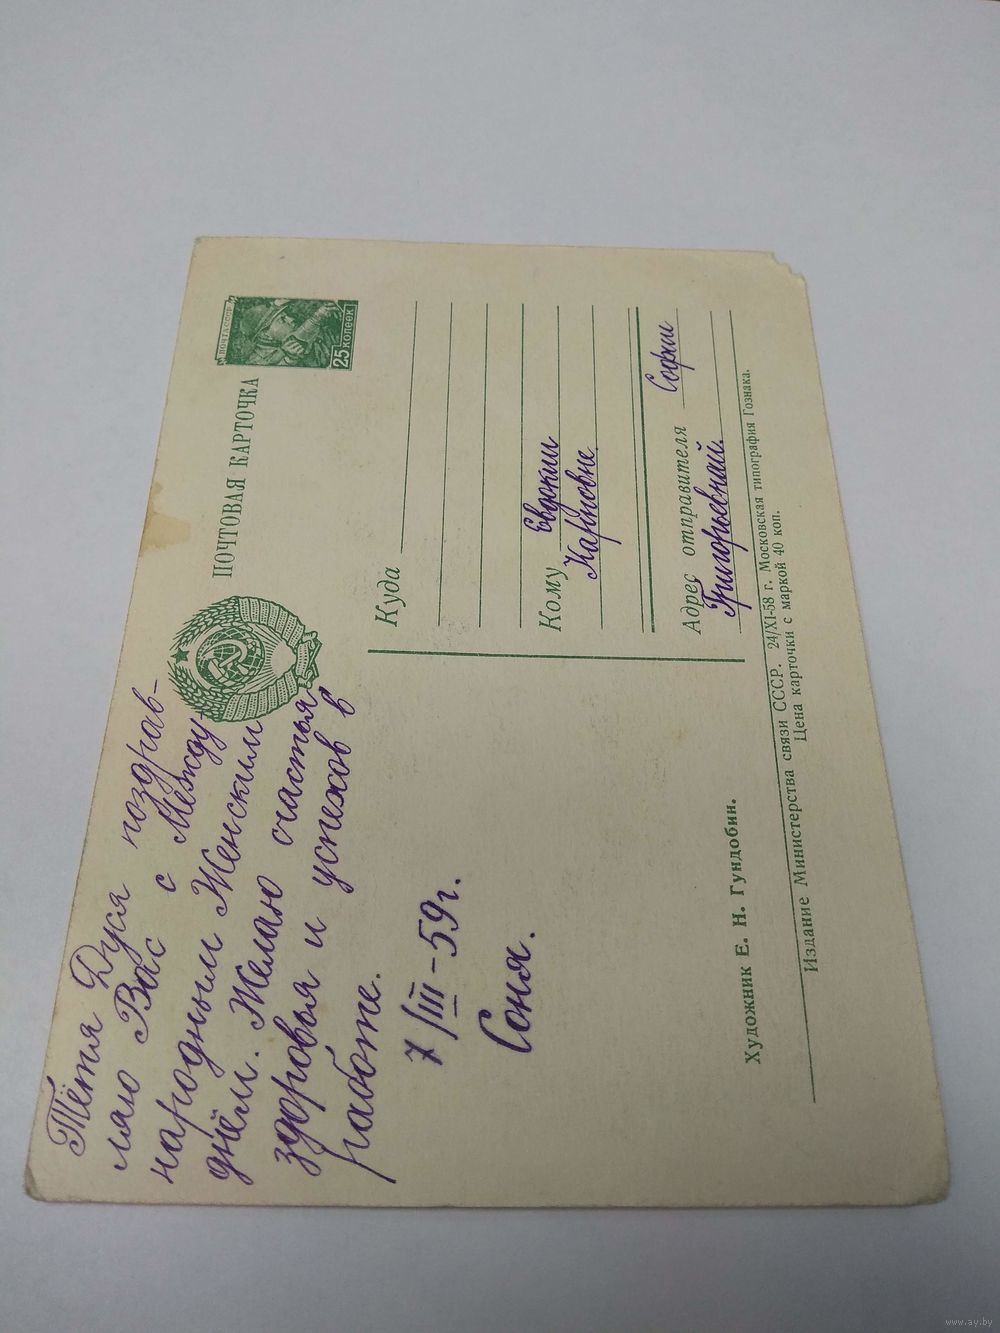 Тётя Дуся поздрав-
ляю Вас с Между-
народным Женским
днём. Желаю счастья
здоровья и успехов в
работе.
7/III-59г.
Соня.
Художник Е. Н. Гундобин.
ПОЧТОВАЯ КАРТОЧКА
ПОЧТА СССР
25 КОПЕЕК
Куда
Кому Евдокии
Карповне
Адрес отправителя Софии
Григорьевной.
Издание Министерства связи СССР. 24/XI-58 г. Московская типография Гознака.
Цена карточки с маркой 40 коп.
www.ay.by